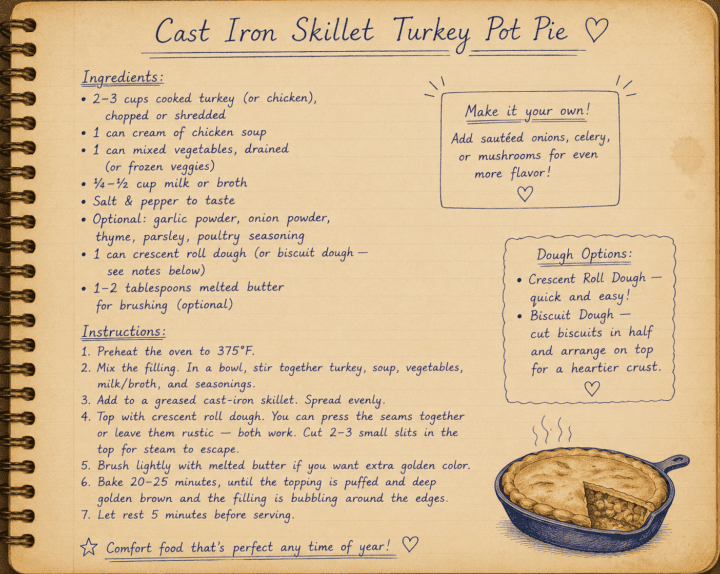 Cast Iron Skillet Turkey Pot Pie ♡
Ingredients:
• 2–3 cups cooked turkey (or chicken),
chopped or shredded
• 1 can cream of chicken soup
• 1 can mixed vegetables, drained
(or frozen veggies)
• ¼–½ cup milk or broth
• Salt & pepper to taste
• Optional: garlic powder, onion powder,
thyme, parsley, poultry seasoning
• 1 can crescent roll dough (or biscuit dough —
see notes below)
• 1–2 tablespoons melted butter
for brushing (optional)
Instructions:
1. Preheat the oven to 375°F.
2. Mix the filling. In a bowl, stir together turkey, soup, vegetables,
milk/broth, and seasonings.
3. Add to a greased cast-iron skillet. Spread evenly.
4. Top with crescent roll dough. You can press the seams together
or leave them rustic — both work. Cut 2–3 small slits in the
top for steam to escape.
5. Brush lightly with melted butter if you want extra golden color.
6. Bake 20–25 minutes, until the topping is puffed and deep
golden brown and the filling is bubbling around the edges.
7. Let rest 5 minutes before serving.
☆ Comfort food that's perfect any time of year! ♡
Make it your own!
Add sautéed onions, celery,
or mushrooms for even
more flavor!
♡
Dough Options:
• Crescent Roll Dough —
quick and easy!
• Biscuit Dough —
cut biscuits in half
and arrange on top
for a heartier crust.
♡